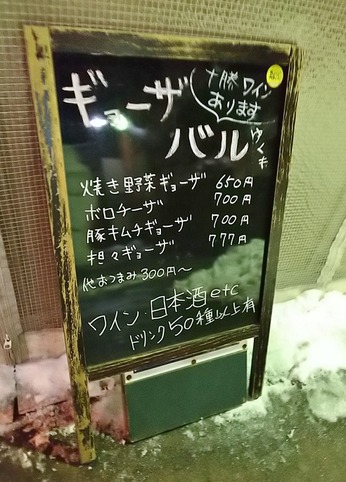 ギョーザ
十勝ワイン
あります
バル
ゆくキ
焼き野菜ギョーザ 650円
ボロチーザ 700円
豚キムチギョーザ 700円
担々ギョーザ 777円
他おつまみ300円〜
ワイン・日本酒etc
ドリンク50種以上有